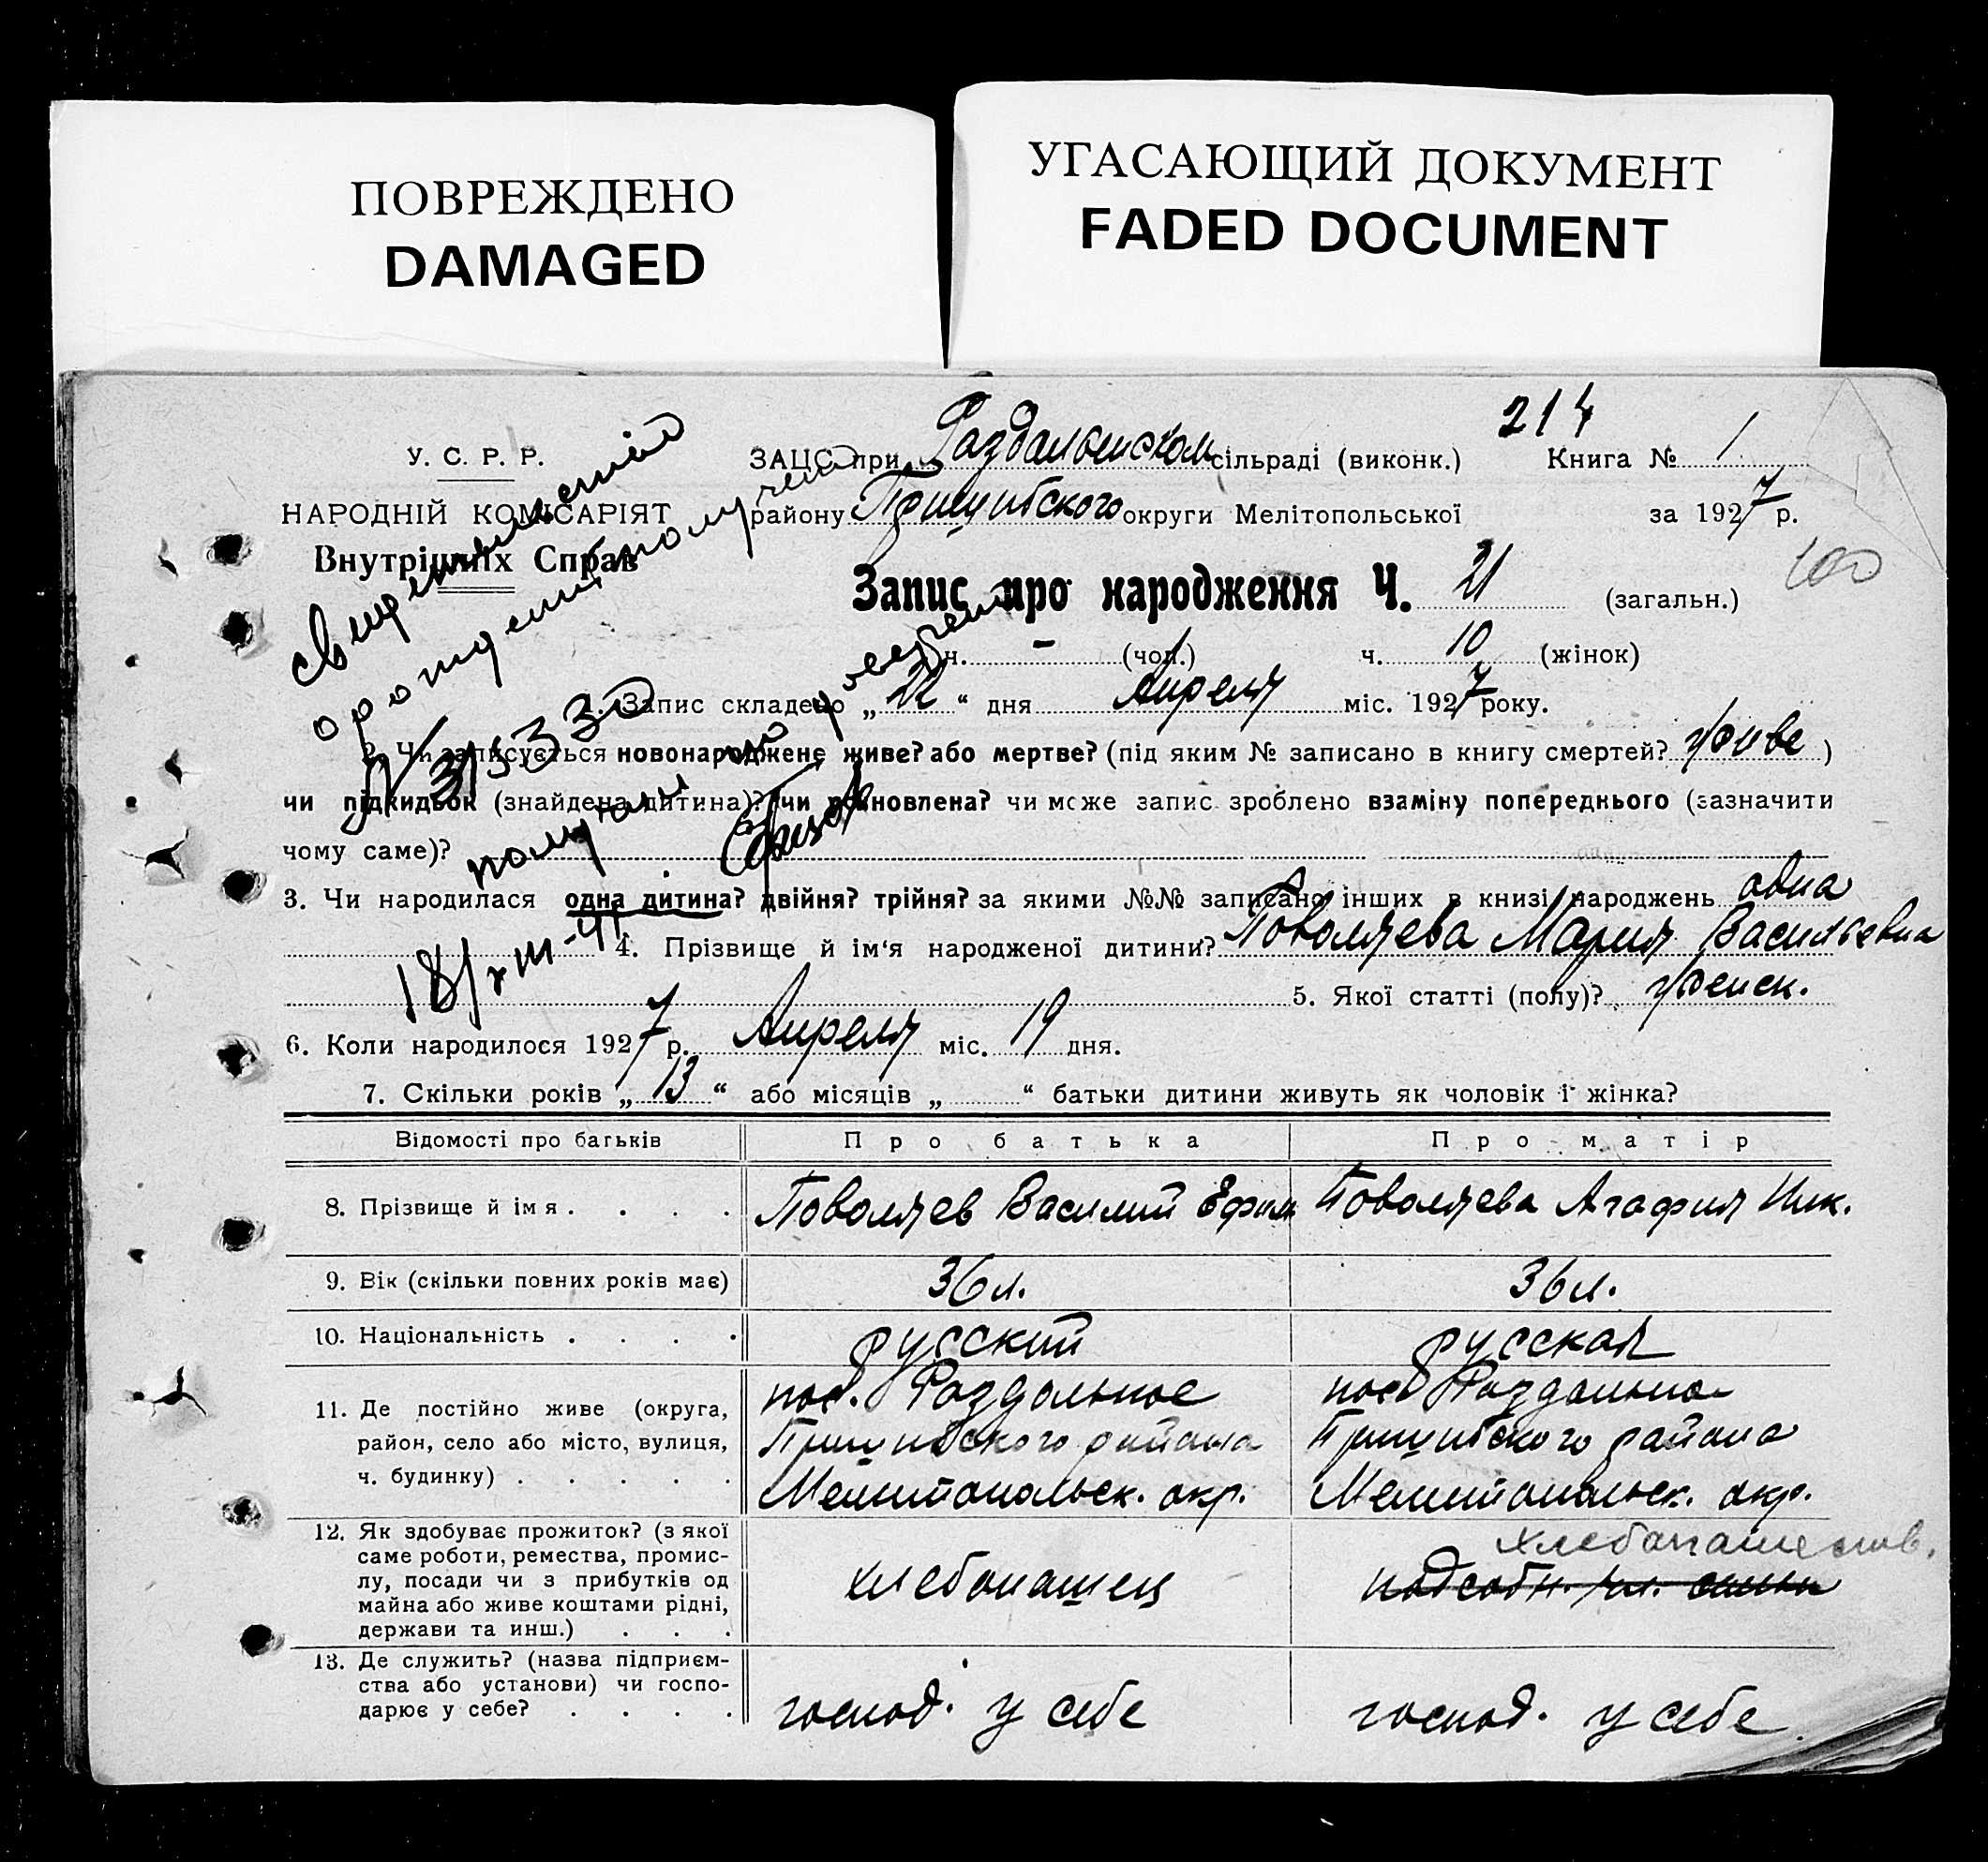 ПОВРЕЖДЕНО
DAMAGED
УГАСАЮЩИЙ ДОКУМЕНТ
FADED DOCUMENT
214
У. С. Р. Р.
НАРОДНІЙ КОМІСАРІЯТ
Внутрішніх Справ
ЗАЦС при Раздольенском сільраді (виконк.) Книга № 1
району Пришибского округи Мелітопольської за 1927 р.
100
Запис про народження Ч. 21 (загальн.)
ч. – (чол.) ч. 10 (жінок)
1. Запис складено „22“ дня Апреля міс. 1927 року.
2. Чи записується новонароджене живе? або мертве? (під яким № записано в книгу смертей? живе)
чи підкидьок (знайдена дитина)? чи установлена? чи може запис зроблено взаміну попереднього (зазначити
чому саме)?
3. Чи народилася одна дитина? двійня? трійня? за якими №№ записано інших в книзі народжень одна
4. Прізвище й ім'я народженої дитини? Поволяева Мария Васильевна
5. Якої статті (полу)? женск.
6. Коли народилося 1927 р. Апреля міс. 19 дня.
7. Скільки років „13“ або місяців „ “ батьки дитини живуть як чоловік і жінка?
Відомості про батьків Про батька Про матір
8. Прізвище й імя . . . . Поволяев Василий Ефим Поволяева Агафия Ник.
9. Вік (скільки повних років має) 36 л. 36 л.
10. Національність . . . . русский русская
11. Де постійно живе (округа,
район, село або місто, вулиця,
ч. будинку) . . . . .
пос. Раздольное
Пришибского района
Мелитопольск. окр.
пос. Раздольное
Пришибского района
Мелитопольск. окр.
12. Як здобуває прожиток? (з якої
саме роботи, ремества, промис-
лу, посади чи з прибутків од
майна або живе коштами рідні,
держави та инш.) . . .
хлебопашец
хлебопашеств.
подсобн. чл. семьи
13. Де служить? (назва підприєм-
ства або установи) чи госпо-
дарює у себе? . . . .
господ. у себе
господ. у себе